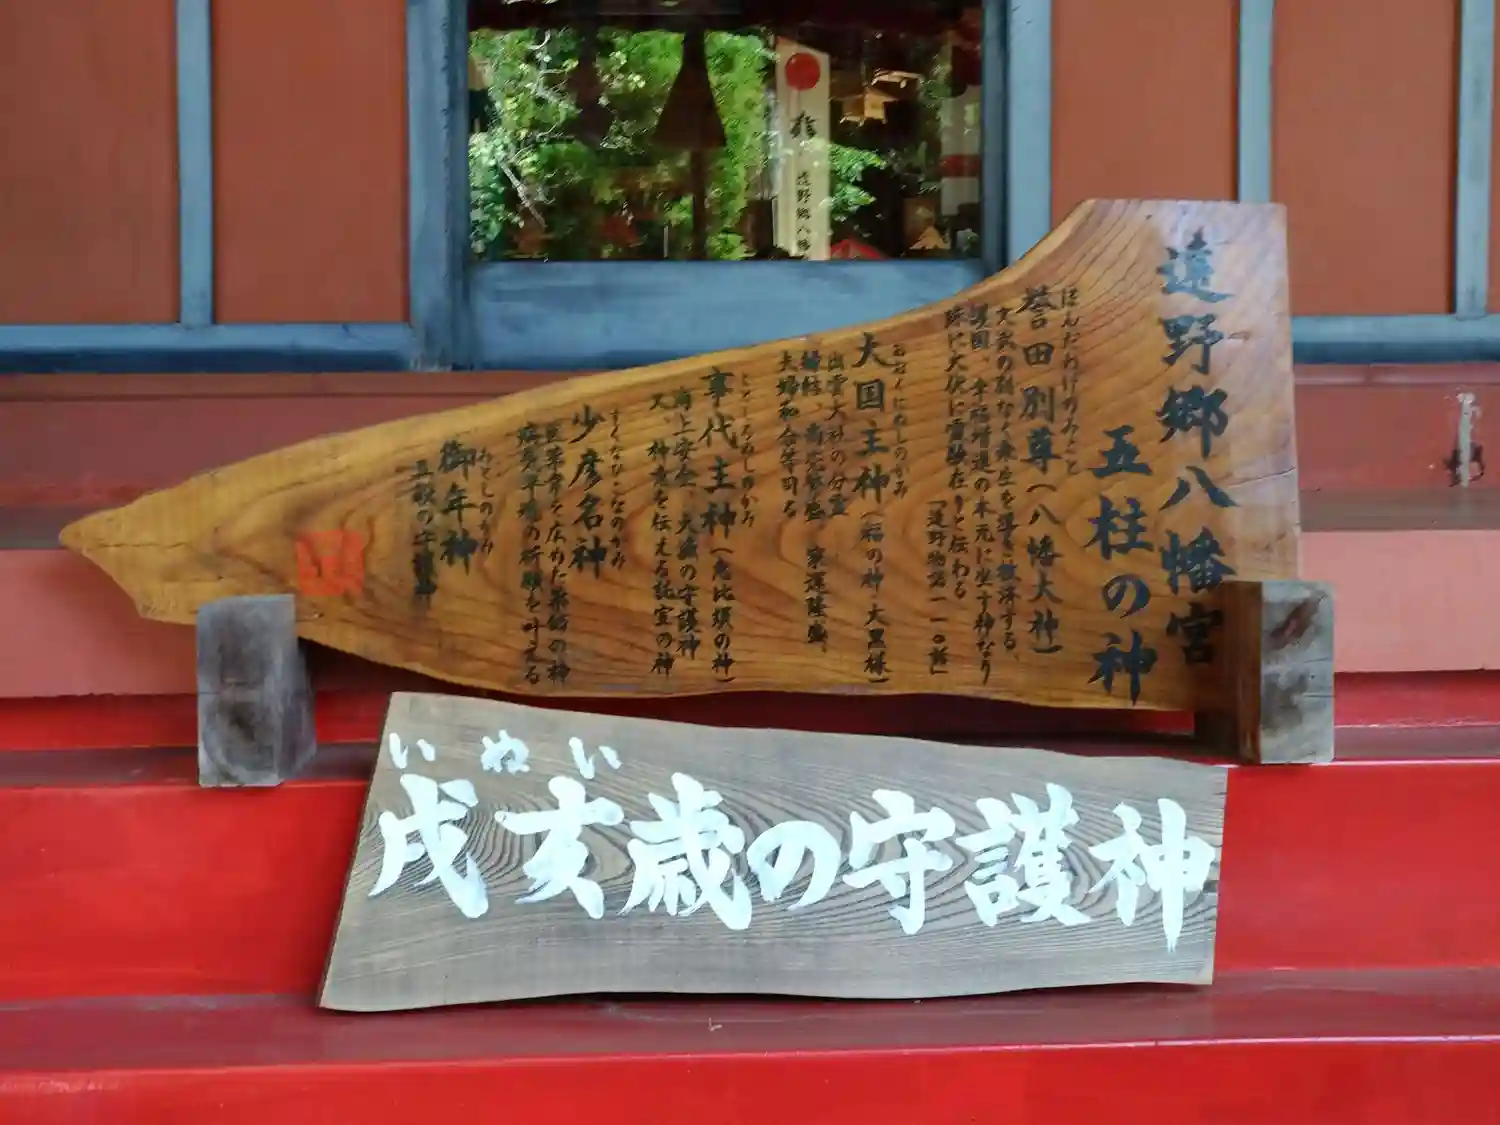 遠野郷八幡宮
五柱の神
ほんだわけのみこと
誉田別尊（八幡大神）
文武の別なく衆生を導き救済する、
護国、幸福増進の本元に坐す神なり
殊に大伏に霊験在りと伝わる
「遠野物語一一〇話」
おおくにぬしのかみ
大国主神（福の神 大黒様）
出雲大社の分霊
縁結、商売繁盛、家運隆盛、
夫婦和合等司る
ことしろぬしのかみ
事代主神（恵比須の神）
海上安全、大漁の守護神
又、神意を伝える託宣の神
すくなひこなのかみ
少彦名神
医薬を広めた薬師の神
病気平癒の祈願を叶える
みとしのかみ
御年神
五穀の守護神
いぬい
戌亥歳の守護神
遠野郷八幡